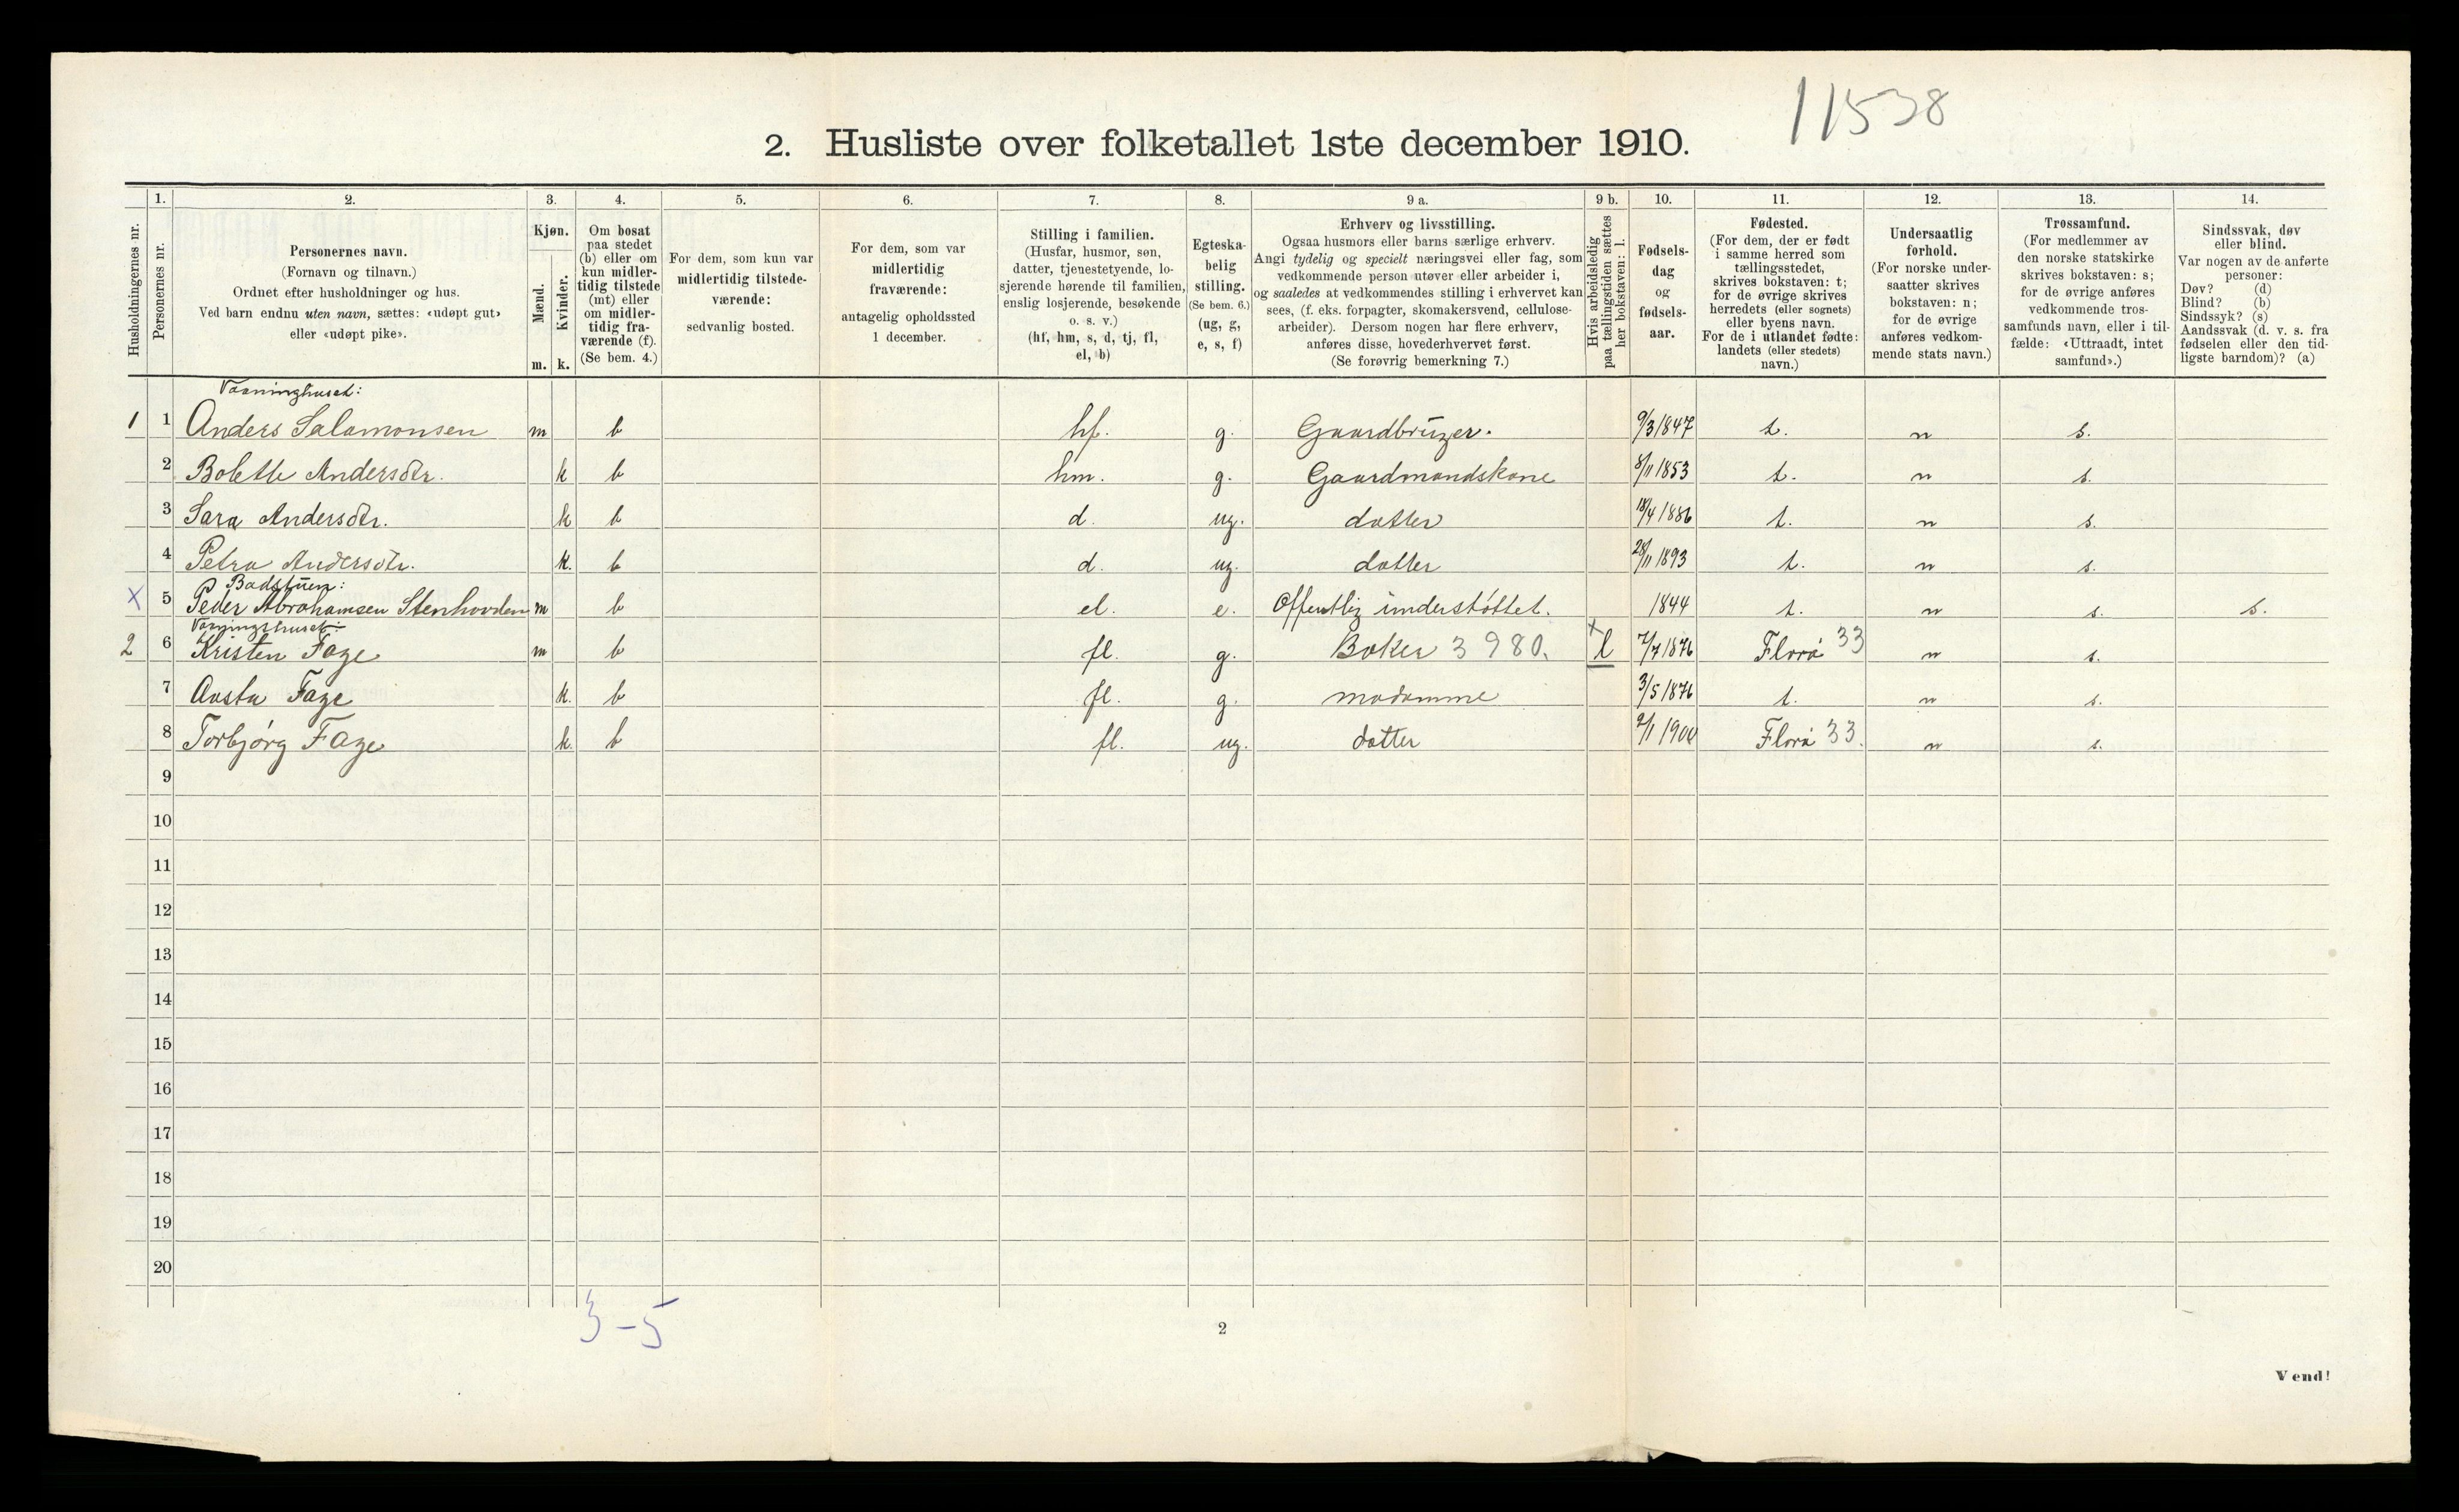 11538
2. Husliste over folketallet 1ste december 1910.
Husholdningernes nr.
1.
Personernes nr.
2.
Personernes navn.
(Fornavn og tilnavn.)
Ordnet efter husholdninger og hus.
Ved barn endnu uten navn, sættes: «udøpt gut»
eller «udøpt pike».
3.
Kjøn.
Mænd.
m.
Kvinder.
k.
4.
Om bosat
paa stedet
(b) eller om
kun midler-
tidig tilstede
(mt) eller
om midler-
tidig fra-
værende (f).
(Se bem. 4.)
5.
For dem, som kun var
midlertidig tilstede-
værende:
sedvanlig bosted.
6.
For dem, som var
midlertidig
fraværende:
antagelig opholdssted
1 december.
7.
Stilling i familien.
(Husfar, husmor, søn,
datter, tjenestetyende, lo-
sjerende hørende til familien,
enslig losjerende, besøkende
o. s. v.)
(hf, hm, s, d, tj, fl,
el, b)
8.
Egteska-
belig
stilling.
(Se bem. 6.)
(ug, g,
e, s, f)
9 a.
Erhverv og livsstilling.
Ogsaa husmors eller barns særlige erhverv.
Angi tydelig og specielt næringsvei eller fag, som
vedkommende person utøver eller arbeider i,
og saaledes at vedkommendes stilling i erhvervet kan
sees, (f. eks. forpagter, skomakersvend, cellulose-
arbeider). Dersom nogen har flere erhverv,
anføres disse, hovederhvervet først.
(Se forøvrig bemerkning 7.)
9 b.
Hvis arbeidsledig
paa tællingstiden sættes
her bokstaven: l.
10.
Fødsels-
dag
og
fødsels-
aar.
11.
Fødested.
(For dem, der er født
i samme herred som
tællingsstedet,
skrives bokstaven: t;
for de øvrige skrives
herredets (eller sognets)
eller byens navn.
For de i utlandet fødte:
landets (eller stedets)
navn.)
12.
Undersaatlig
forhold.
(For norske under-
saatter skrives
bokstaven: n;
for de øvrige
anføres vedkom-
mende stats navn.)
13.
Trossamfund.
(For medlemmer av
den norske statskirke
skrives bokstaven: s;
for de øvrige anføres
vedkommende tros-
samfunds navn, eller i til-
fælde: «Uttraadt, intet
samfund».)
14.
Sindssvak, døv
eller blind.
Var nogen av de anførte
personer:
Døv? (d)
Blind? (b)
Sindssyk? (s)
Aandssvak (d. v. s. fra
fødselen eller den tid-
ligste barndom)? (a)
Vaaninghuset:
1 1 Anders Salamonsen m b hf. g. Gaardbruger. 9/3 1847 t. n s.
2 Bolette Andersdtr. k b hm. g. Gaardmandskone 8/11 1853 t. n s.
3 Sara Andersdtr. k b d. ug. datter 18/4 1886 t. n s.
4 Petra Andersdtr. k. b d. ug. datter 28/11 1893 t. n s.
Badstuen:
X 5 Peder Abrahamsen Stenhovden m b el. e. Offentlig understøttet. 1844 t. n s. s.
Vaaningshuset:
2 6 Kristen Fage m b fl. g. Baker 3980. x l 7/7 1876 Florø 33 n s.
7 Aasta Fage k. b fl. g. madamme 3/5 1876 t. n s.
8 Torbjørg Fage k. b fl. ug. datter 9/1 1900 Florø 33. n s.
9
10
11
12
13
14
15
16
17
18
19
20
3-5
2
Vend!